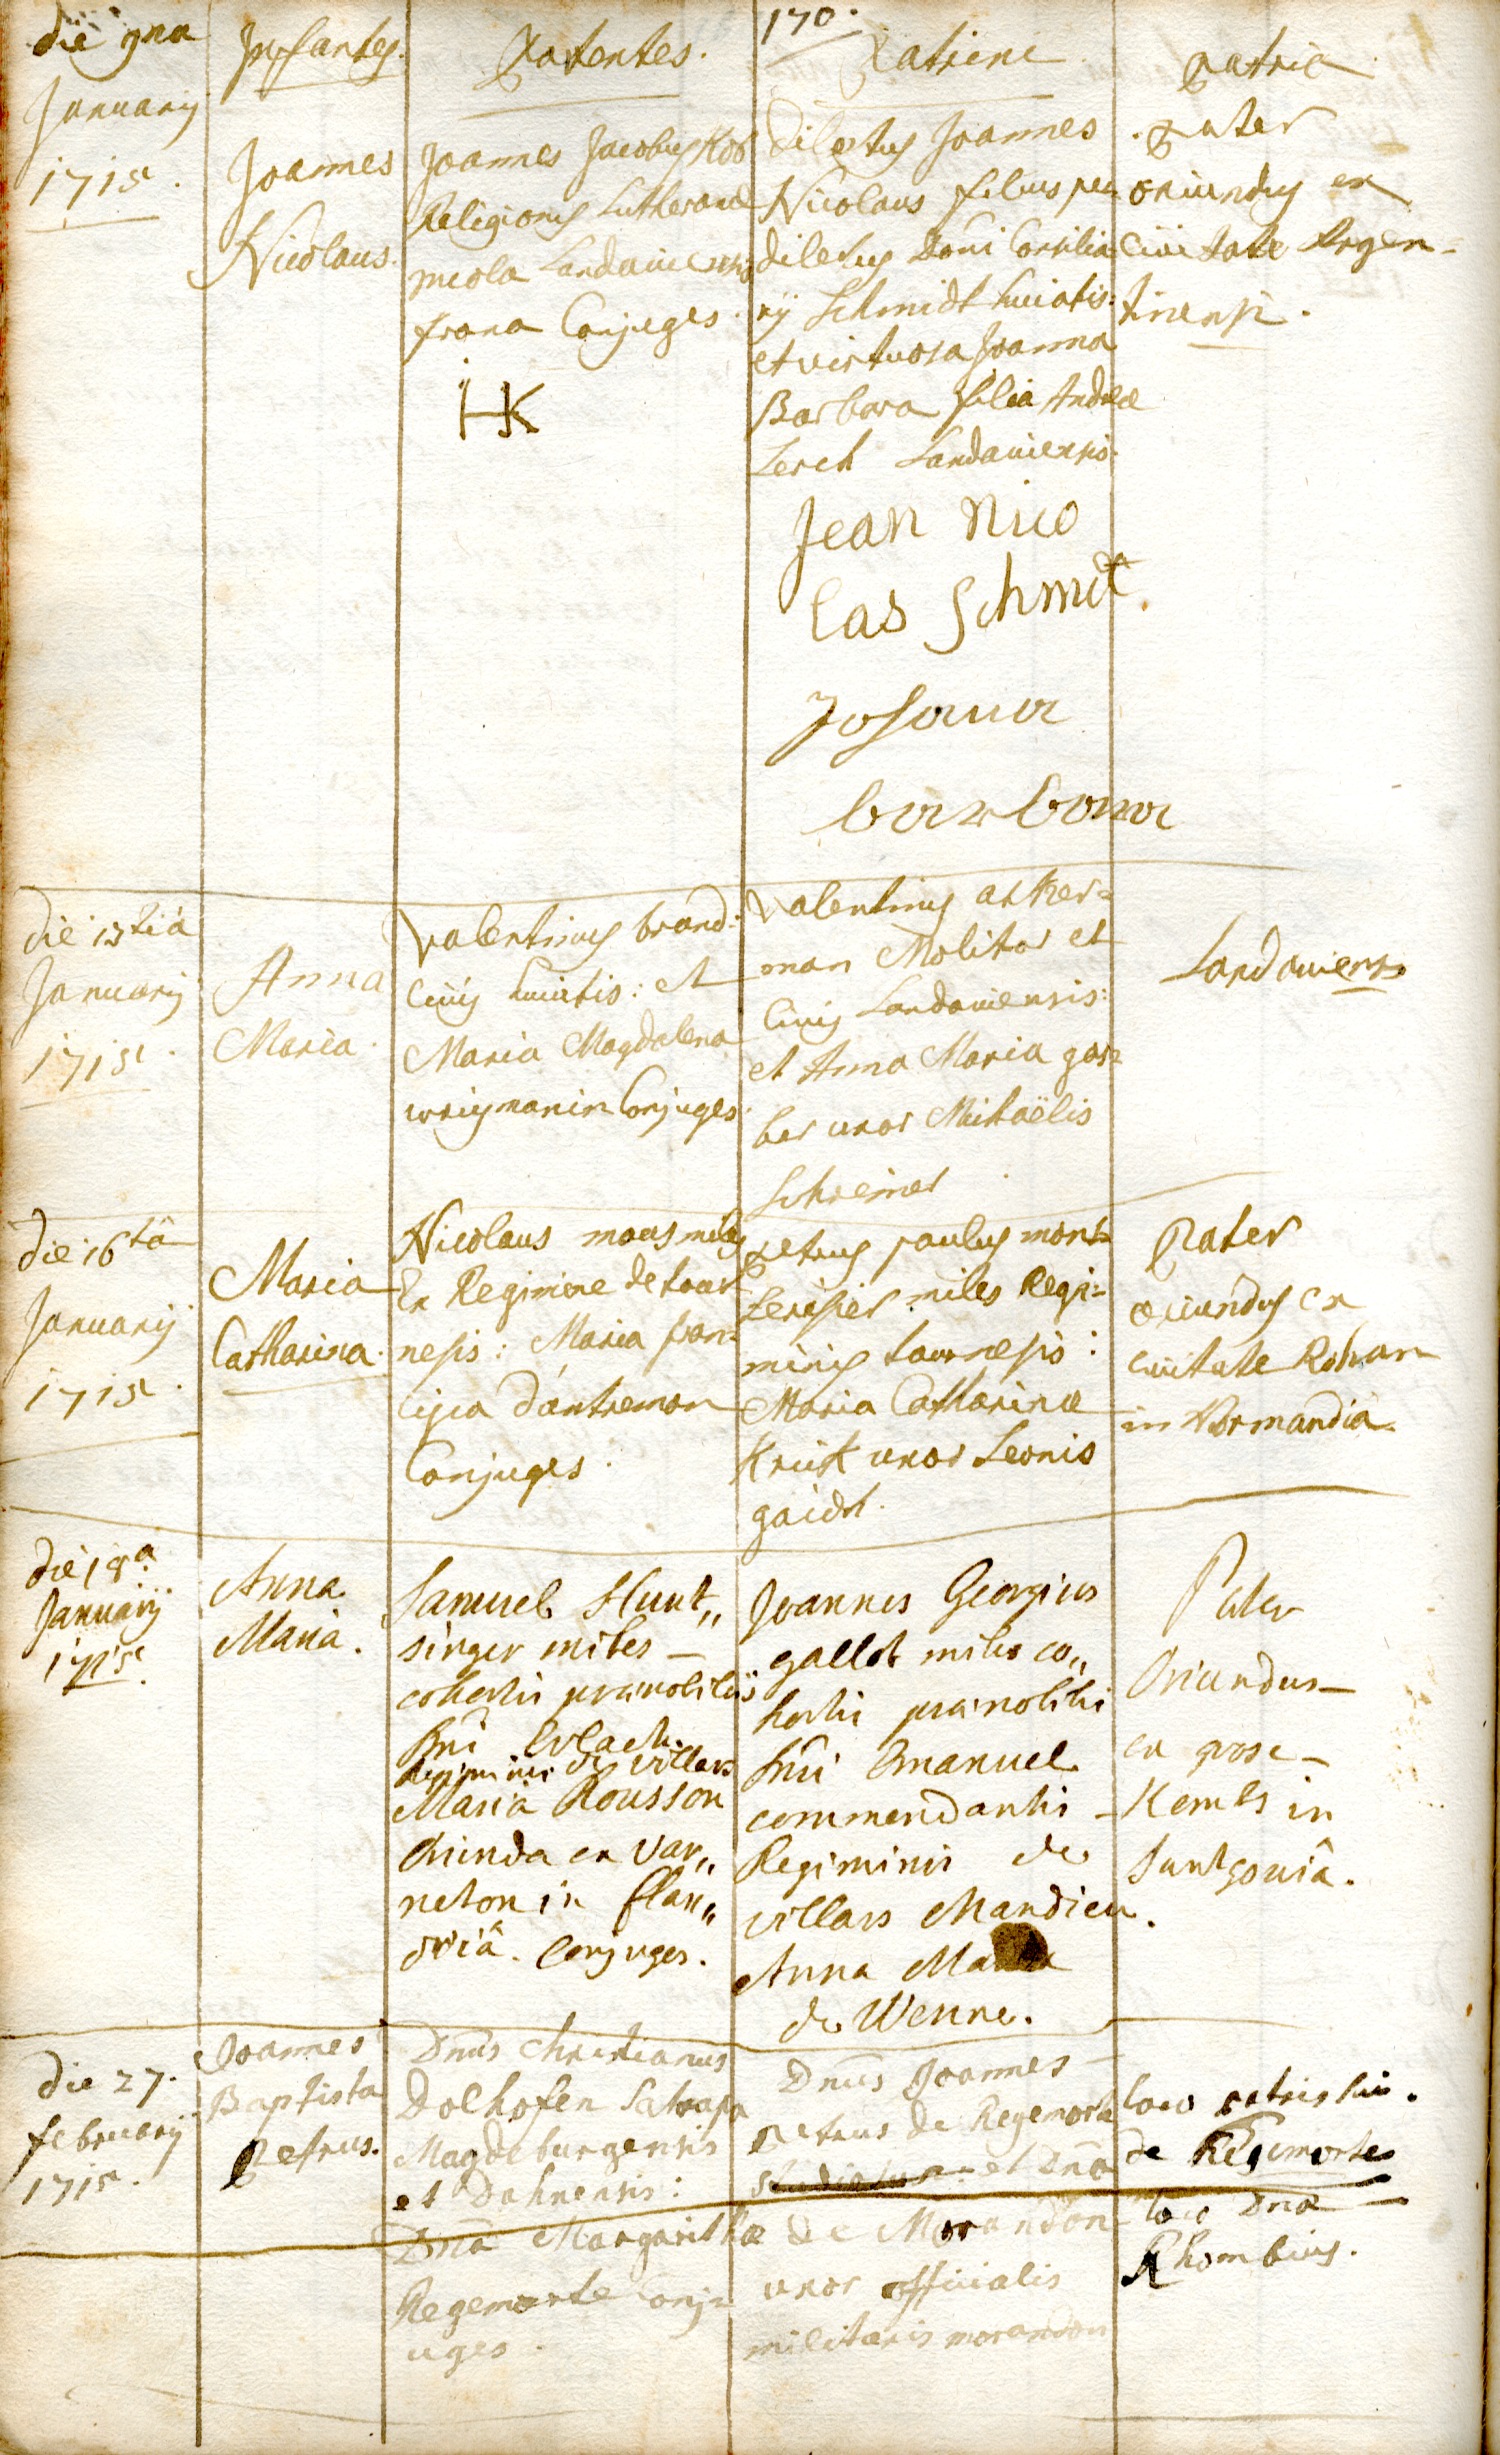 170.
die 9na
January
1715.
Infantes.
Joannes
Nicolaus.
Parentes.
Joannes Jacobus Kob
Religionis Lutheranae
incola Landaviensis
frana Conjuges.
HK
Patrini
dilectus Joannes
Nicolaus filius per
dilectus Domi Consilia
rij Schmidt huiatis:
et virtuosa Joanna
Barbara filia Andreae
Lerch Landaviensis.
Jean Nico
las Schmit.
Johanna
barbara
patria
pater
oriundus ex
Civitate Argen-
tinensi.
die 13tiâ
January
1715.
Anna
Maria.
Valentinus brand:
Civis huiatis: et
Maria Magdalena
Conjuges.
Valentinus akker=
man Molitor et
Civis Landaviensis:
et Anna Maria gar=
ber uxor Michaëlis
Schreiner
Landaviensis
die 16tâ
Januarij
1715.
Maria
Catharina.
Nicolaus maus miles
Ex Regimine de tour
nesis: Maria fran=
cisca d'antremon
Conjuges.
petrus paulus mont=
miles Regi=
minis tournesis:
Maria Catharina
Kruk uxor Leonis
gaidot.
Pater
oriundus ex
civitate Rohan
in Normandia.
die 18a
Januarij
1715.
Anna
Maria.
Samuel Hunt„
singer miles
cohortis praenobilis
Dni Erlach.
Regiminis de villars
Maria Rousson
Oriunda ex Var„
neton in flan„
driâ. Conjuges.
Joannes Georgius
gallot miles co„
hortis praenobilis
Dni Emanuel
commendantis
Regiminis de
villars Mandieu.
Anna Maria
de Wenne.
Pater
Oriundus
ex grose
Kembs in
Suntgoviâ.
die 27.
february
1715.
Joannes
Baptista
Petrus.
Dnus Christianus
Dolhofen Satrapa
Magdeburgensis
et Dahnensis:
Dna Margaritha
Regemorte Conj=
uges.
Dnus Joannes
Petrus de Regemorte
et Dna
de Morandon
uxor officialis
militaris morandon
loco patris sui.
de Regemorte
loco Dnae
Rhombius.